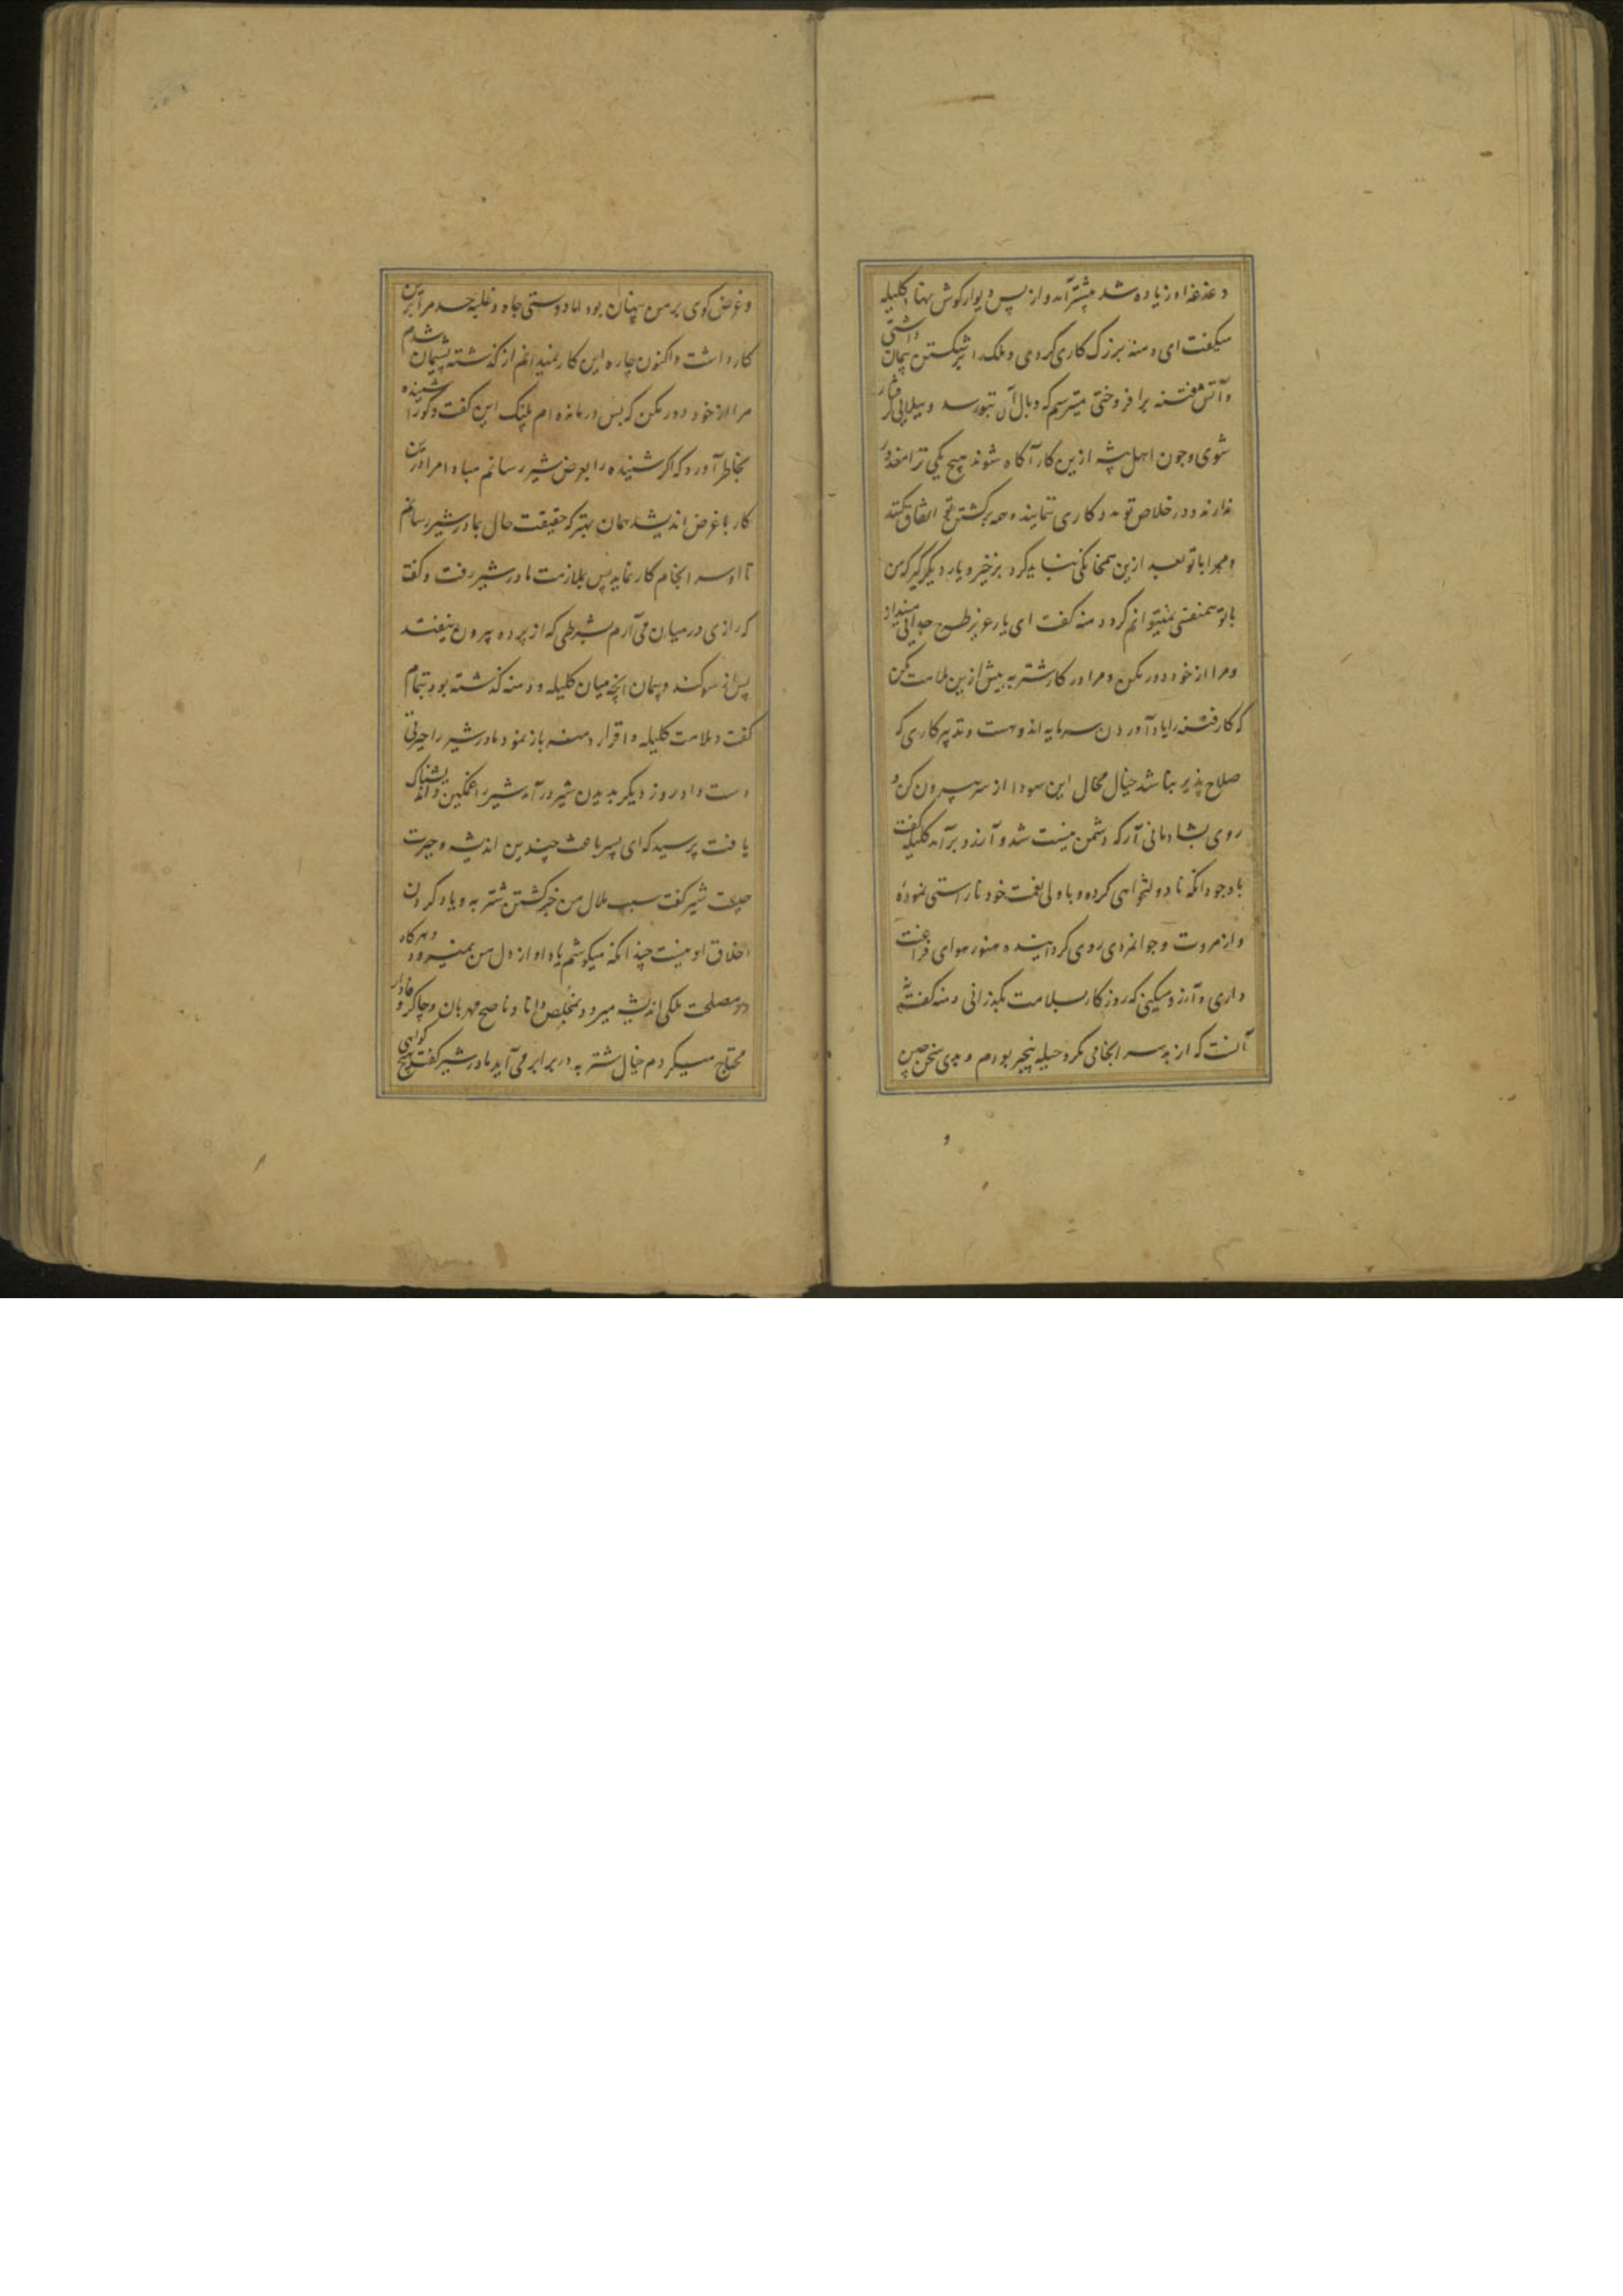 دغدغه او زیاده شد پیشتر آمد و از پس دیوار گوش نهاد کلیله
میگفت ای دمنه بزرگ کاری کردی و ملک را بر شکستن پیمان داشتی
و آتش فتنه برافروختی میترسم که وبال آن بتو رسد و ببلایی گرفتار
شوی و چون اهل بیشه ازین کار آگاه شوند هیچ یکی ترا معذور
ندارند و در خلاص تو مددکاری ننمایند و همه بر کشتن تو اتفاق کنند
و مرا با تو بعد ازین همخانگی نباید کرد برخیز و یار دیگر گیر که من
با تو نمیتوانم کرد دمنه گفت ای یار عزیز طرح جدایی مینداز
و مرا از خود دور مکن و مرا در کار شتربه بیش ازین ملامت مکن
که کار رفته را یاد آوردن سرمایه اندوهست و تدبیر کاری که
صلاح پذیر نباشد خیال محال این سودا از سر بیرون کن و
روی بشادمانی آر که دشمن نیست شد و آرزو برآمد کلیله گفت
باوجود آنکه نادولتخواهی کرده و با ولی نعمت خود ناراستی نموده
و از مروت و جوانمردی روی گردانیده هنوز هوای فراغت
داری و آرزو میکنی که روزگار بسلامت بگذرانی دمنه گفت نه
آنست که از بد سرانجامی مکر و حیله بیخبر بودم و بدی سخن چینی
و غرض گوی بر من پنهان بود اما دوستی جاه و غلبه حسد مرا برین
کار داشت و اکنون چاره این کار نمیدانم از گذشته پشیمان شدم
مرا از خود دور مکن که بس درمانده ام پلنگ این گفت و گو را شنیده
بخاطر آورد که اگر شنیده را بعرض شیر رسانم مبادا مرا درین
کار با غرض اندیشد همان بهتر که حقیقت حال بمادر شیر رسانم
تا او سرانجام کار نماید پس بملازمت مادر شیر رفت و گفت
که رازی در میان می آرم بشرطی که از پرده بیرون نیفتد
پس از سوگند و پیمان آنچه میان کلیله و دمنه گذشته بود بتمام
گفت و ملامت کلیله و اقرار دمنه باز نمود مادر شیر را حیرتی
دست داد روز دیگر بدیدن شیر درآمد شیر را غمگین و اندیشناک
یافت پرسید که ای پسر باعث چندین اندیشه و حیرت
چیست شیر گفت سبب ملال من خبر کشتن شتربه و یاد کردن
اخلاق او نیست چندانکه میکوشم یاد او از دل من نمیرود و هرگاه
در مصلحت ملکی اندیشه میرود بمخلص دانا و ناصح مهربان و چاکر وفادار
محتاج میگردم خیال شتربه در برابر می آید مادر شیر گفت هیچ گواهی